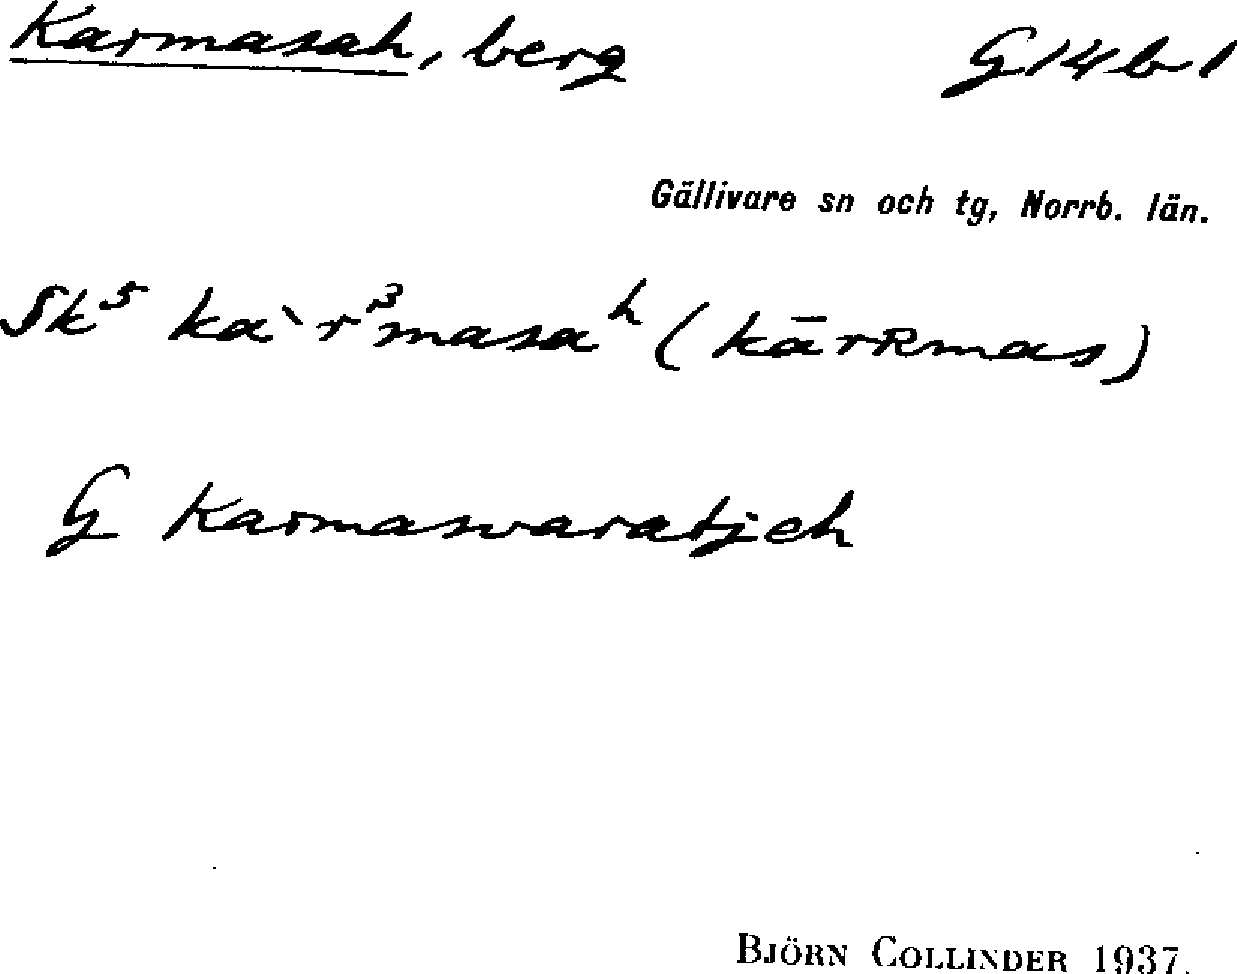 Karmasah, berg G14b1
Gällivare sn och tg, Norrb. län.
Sk⁵ ka`rᵌmasaʰ (kārʀmas)
G Karmasvaratjeh
BJÖRN COLLINDER 1937.